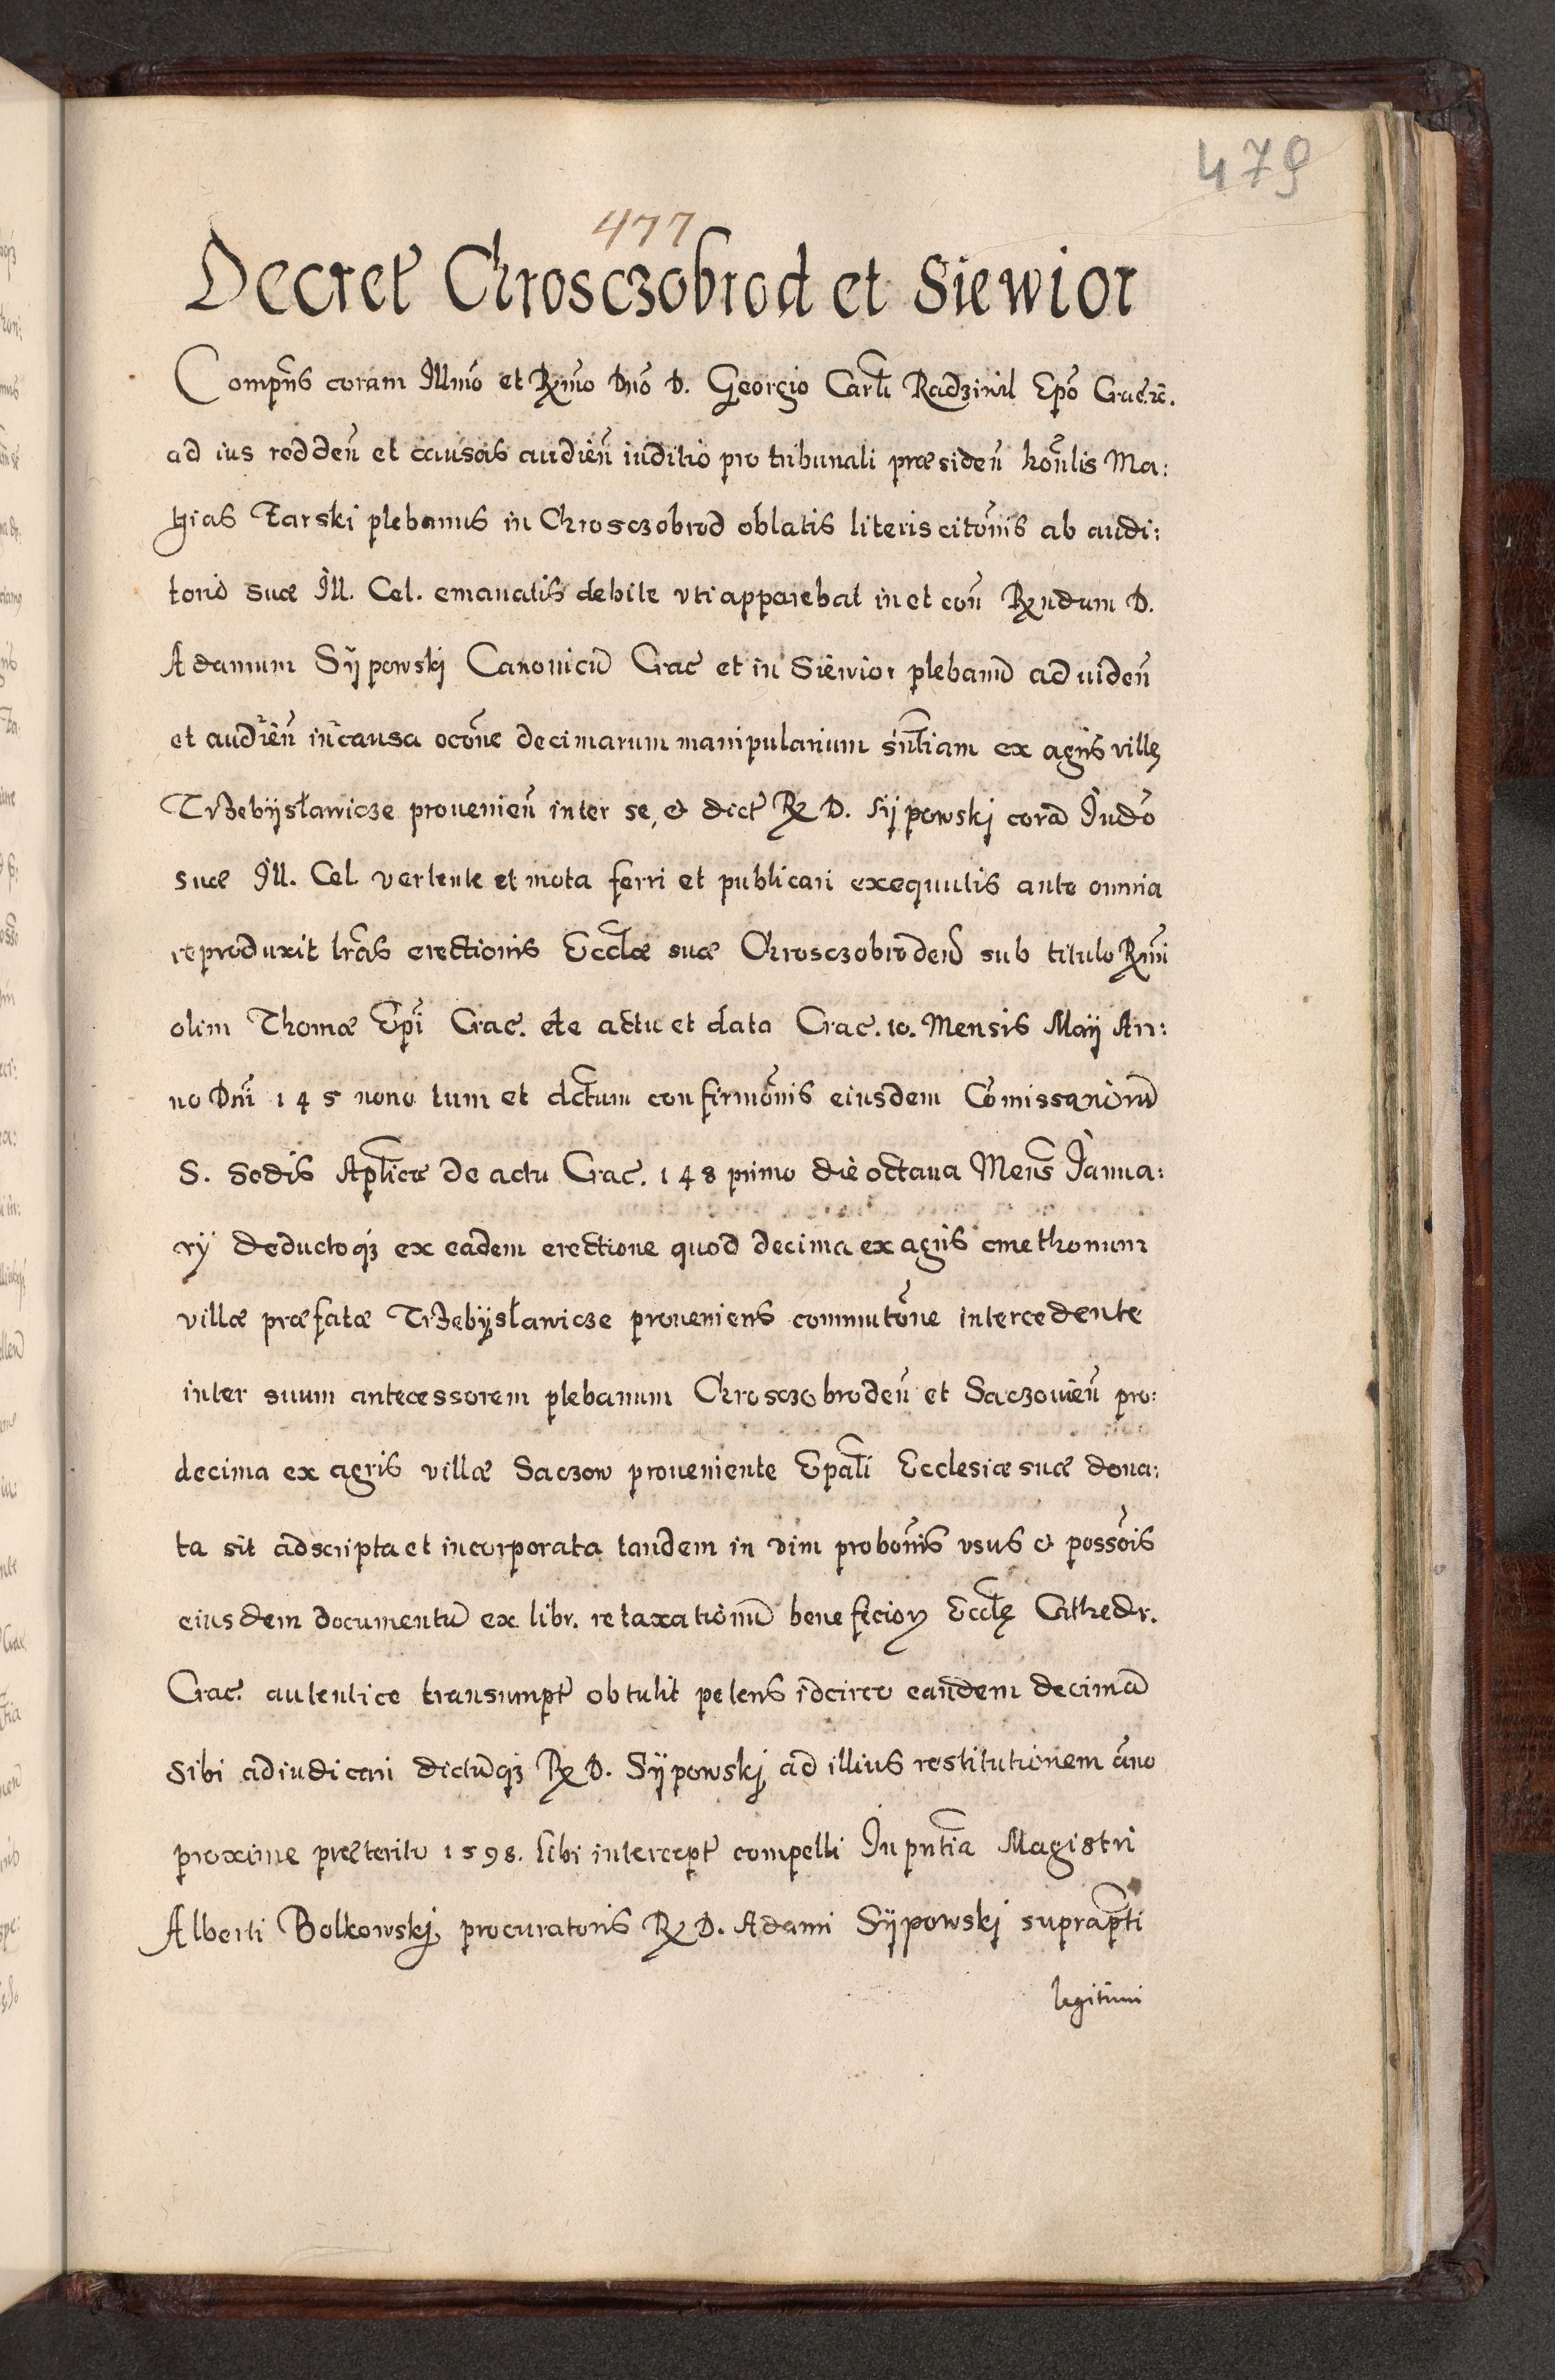 479
477
Decret̃ Chrosczobrod et Siewior
Comprñs coram Illmõ et Rx̃mo Dnõ D. Georgio Carlĩ Radziwil Epõ Crac̃. &c.
ad ius redden̄ et causas audien̄ iuditio pro tribunali præsiden̄ honlis̃ Ma:
thias Tarski plebanus in Chrosczobrod oblatis literis citõnis ab audi:
torio suæ Ill. Cel. emanatis debite vti apparebat in et con̄ Rx̃ndum D.
Adamum Sijpowskj Canonicũ Crac̃ et in Siewior plebanũ ad uiden̄
et audien̄ in causa occõne decimarum manipularium sñtiam ex agris villę
Trzebijsławicze prouenien̄ inter se, & dict̃ Rx D. Sijpowskj corã Iudõ
suæ Ill. Cel. vertente et mota ferri et publicari exequutis ante omnia
reproduxit lrãs erectionis Eccłæ suæ Chrosczobroden̄ sub titulo Rx̃mi
olim Thomæ Epĩ Crac̃. de actu et data Crac̃. 10. Mensis Maij An:
no Dnĩ 145 nono tum et dctum̃ confirmõnis eiusdem Cõmissariorũ
S. Sedis Apłicæ de actu Crac̃. 148 primo die octaua Mens̃ Ianua:
rÿ deductoq3 ex eadem erectione quod decima ex agris cmethonum
villæ præfatæ Trzebijsławicze proueniens commutõne intercedente
inter suum antecessorem plebanum Chrosczobroden̄ et Saczouien̄ pro:
decima ex agris villæ Saczow proueniente Epałi Ecclesiæ suæ dona:
ta sit adscripta et incorporata tandem in vim probõnis vsus & possõis
eiusdem documentũ ex libr. retaxationũ beneficioꝝ Eccłę Cathedr.
Crac̃. autentice transumpt̃ obtulit petens idcirco eandem decimã
sibi adiudicari dictũq3 Rx D. Sijpowskj ad illius restitutionem ãno
proxime præterito 1598. sibi intercept̃ compelli In pñtia Magistri
Alberti Bolkowskj procuratoris Rx D. Adami Sijpowskj suprapĩti
legitimi